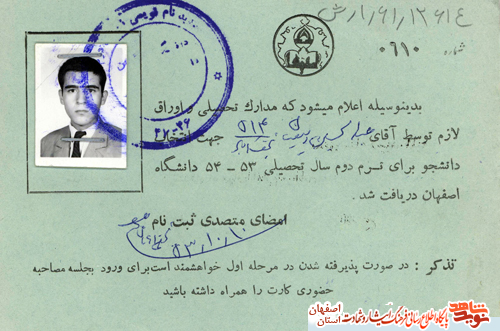 شماره ۰۶۱۰
بدینوسیله اعلام میشود که مدارك تحصیلی و اوراق
لازم توسط آقای جهت
دانشجو برای تـرم دوم سال تحصیلی ۵۳ – ۵۴ دانشگاه
اصفهان دریافت شد .
امضای متصدی ثبت نام
۵۳/۱۰/۱۰
تذکر : در صورت پذیرفته شدن در مرحله اول خواهشمند است برای ورود بجلسه مصاحبه
حضوری کارت را همراه داشته باشید
نوید شاهد
پایگاه اطلاع رسانی فرهنگ ایثار و شهادت استان اصفهان